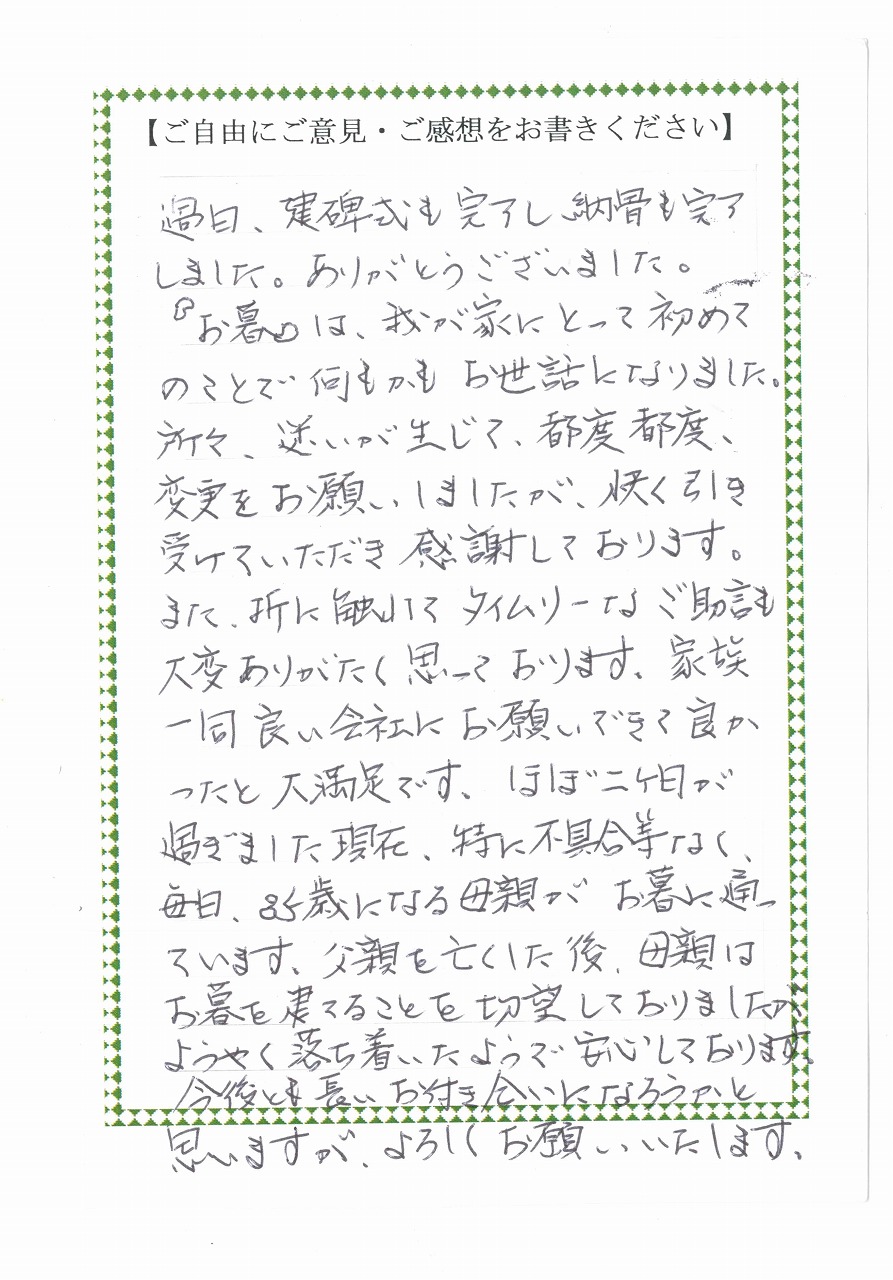 【ご自由にご意見・ご感想をお書きください】
過日、建碑式も完了し納骨も完了
しました。ありがとうございました。
『お墓』は、我が家にとって初めて
のことで何もかもお世話になりました。
所々、迷いが生じて、都度都度、
変更をお願いしましたが、快く引き
受けていただき感謝しております。
また、折に触れてタイムリーなご助言も
大変ありがたく思っております。家族
一同良い会社にお願いできて良か
ったと大満足です。ほぼ二ケ月が
過ぎました現在、特に不具合等なく、
毎日、85歳になる母親がお墓に通っ
ています。父親を亡くした後、母親は
お墓を建てることを切望しておりましたが
ようやく落ち着いたようで安心しております。
今後とも長いお付き合いになろうかと
思いますが、よろしくお願いいたします。